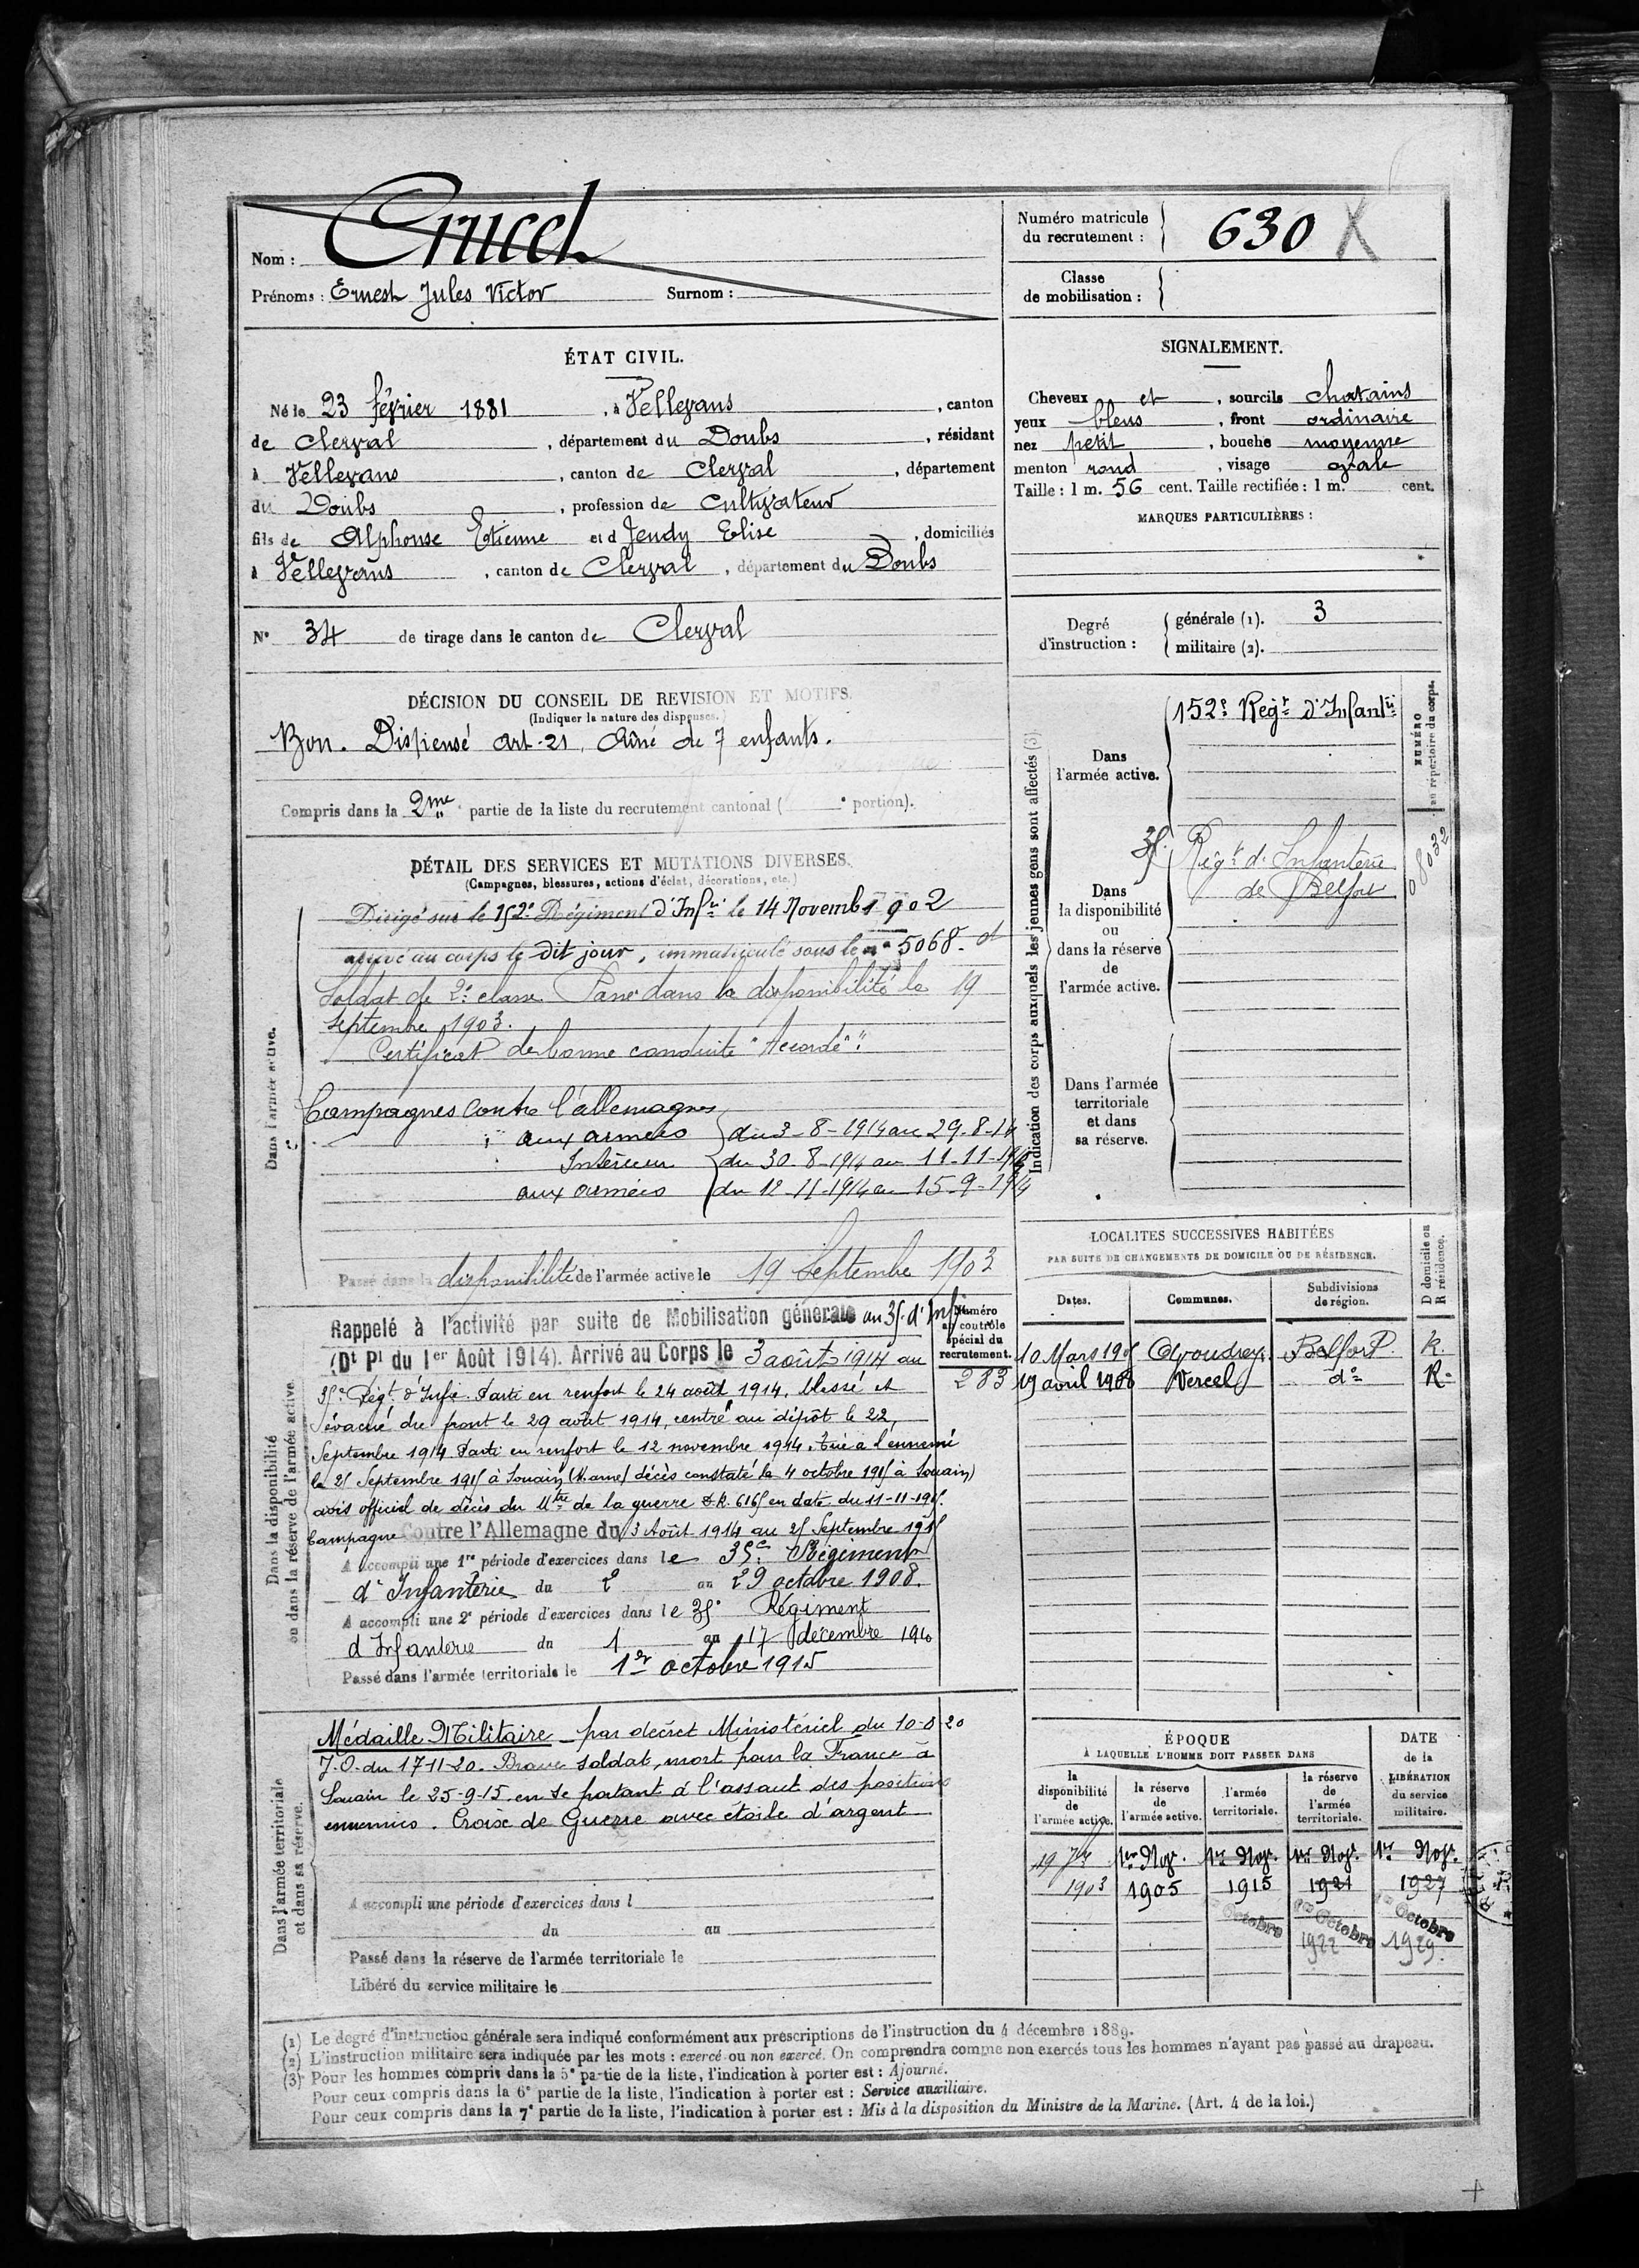 Nom : Crucet
Prénoms : Ernest Jules Victor Surnom :
Numéro matricule du recrutement : 630 X
Classe de mobilisation :
ÉTAT CIVIL.
Né le 23 février 1881, à Vellevans, canton
de Clerval, département du Doubs, résidant
à Vellevans, canton de Clerval, département
du Doubs, profession de Cultivateur
fils de Alphonse Etienne et d Jendy Elise, domiciliés
à Vellevans, canton de Clerval, département du Doubs
N° 34 de tirage dans le canton de Clerval
SIGNALEMENT.
Cheveux et, sourcils chatains
yeux bleus, front ordinaire
nez petit, bouche moyenne
menton rond, visage ovale
Taille : 1 m. 56 cent. Taille rectifiée : 1 m. cent.
MARQUES PARTICULIÈRES :
Degré d'instruction :
générale (1). 3
militaire (2).
DÉCISION DU CONSEIL DE REVISION ET MOTIFS.
(Indiquer la nature des dispenses.)
Bon. Dispensé art. 21, Aîné de 7 enfants.
Compris dans la 2me partie de la liste du recrutement cantonal ( e portion).
DÉTAIL DES SERVICES ET MUTATIONS DIVERSES.
(Campagnes, blessures, actions d'éclat, décorations, etc.)
Dans l'armée active.
Dirigé sur le 152e Régiment d'Infie le 14 Novemb 1902
arrivé au corps le dit jour, immatriculé sous le n° 5068. et
Soldat de 2e classe. Passé dans la disponibilité le 19
Septembre 1903.
Certificat de bonne conduite "Accordé".
Campagnes Contre l'allemagnes
aux armées du 3-8-1914 au 29-8-14
Intérieur du 30-8-1914 au 11-11-1914
aux armées du 12-11-1914 au 15-9-1914
Passé dans la disponibilité de l'armée active le 19 Septembre 1903
Indication des corps auxquels les jeunes gens sont affectés (3).
NUMÉRO au répertoire du corps.
Dans l'armée active.
152e Regt d'Infantie
Dans la disponibilité ou dans la réserve de l'armée active.
35e Régt d'Infanterie
de Belfort
08032
Dans l'armée territoriale et dans sa réserve.
LOCALITES SUCCESSIVES HABITÉES
PAR SUITE DE CHANGEMENTS DE DOMICILE OU DE RÉSIDENCE.
Dates. Communes. Subdivisions de région. D domicile ou R résidence.
10 Mars 190 Avoudrey Belfort R.
19 avril 1908 Vercel do R.
Dans la disponibilité ou dans la réserve de l'armée active.
Numéro au contrôle spécial du recrutement.
283
Rappelé à l'activité par suite de Mobilisation générale au 35e d'Inf
(Dt Pl du 1er Août 1914). Arrivé au Corps le 3 août 1914 au
35e Régt d'Infie. Parti en renfort le 24 août 1914. blessé et
évacué du front le 29 août 1914, rentré au dépôt le 22
Septembre 1914 Parti en renfort le 12 novembre 1914. tué à l'ennemi
le 25 Septembre 1915 à Souain (Marne) décès constaté le 4 octobre 1915 à Souain
avis officiel de décès du Mtre de la guerre & R. 6165 en date du 11-11-1915.
Campagne Contre l'Allemagne du 3 Août 1914 au 25 Septembre 1915
A accompli une 1re période d'exercices dans le 35e Régiment
d'Infanterie du 2 au 29 octobre 1908.
A accompli une 2e période d'exercices dans le 35e Régiment
d'Infanterie du 1 au 17 décembre 1910
Passé dans l'armée territoriale le 1er octobre 1915
Dans l'armée territoriale et dans sa réserve.
Médaille Militaire par décret Ministériel du 10-8-20
J.O. du 17-11-20. Brave soldat, mort pour la France à
Souain le 25-9-15 en se portant à l'assaut des positions
ennemies. Croix de Guerre avec étoile d'argent
A accompli une période d'exercices dans l
du au
Passé dans la réserve de l'armée territoriale le
Libéré du service militaire le
ÉPOQUE
À LAQUELLE L'HOMME DOIT PASSER DANS
la disponibilité de l'armée active. la réserve de l'armée active. l'armée territoriale. la réserve de l'armée territoriale.
DATE de la LIBÉRATION du service militaire.
19 7bre 1er Nov. 1er Nov. 1er Nov. 1er Nov.
1903 1905 1915 1921 1927
Octobre 1er Octobre 1er Octobre
1922 1929.
(1) Le degré d'instruction générale sera indiqué conformément aux prescriptions de l'instruction du 4 décembre 1889.
(2) L'instruction militaire sera indiquée par les mots : exercé ou non exercé. On comprendra comme non exercés tous les hommes n'ayant pas passé au drapeau.
(3) Pour les hommes compris dans la 5e partie de la liste, l'indication à porter est : Ajourné.
Pour ceux compris dans la 6e partie de la liste, l'indication à porter est : Service auxiliaire.
Pour ceux compris dans la 7e partie de la liste, l'indication à porter est : Mis à la disposition du Ministre de la Marine. (Art. 4 de la loi.)